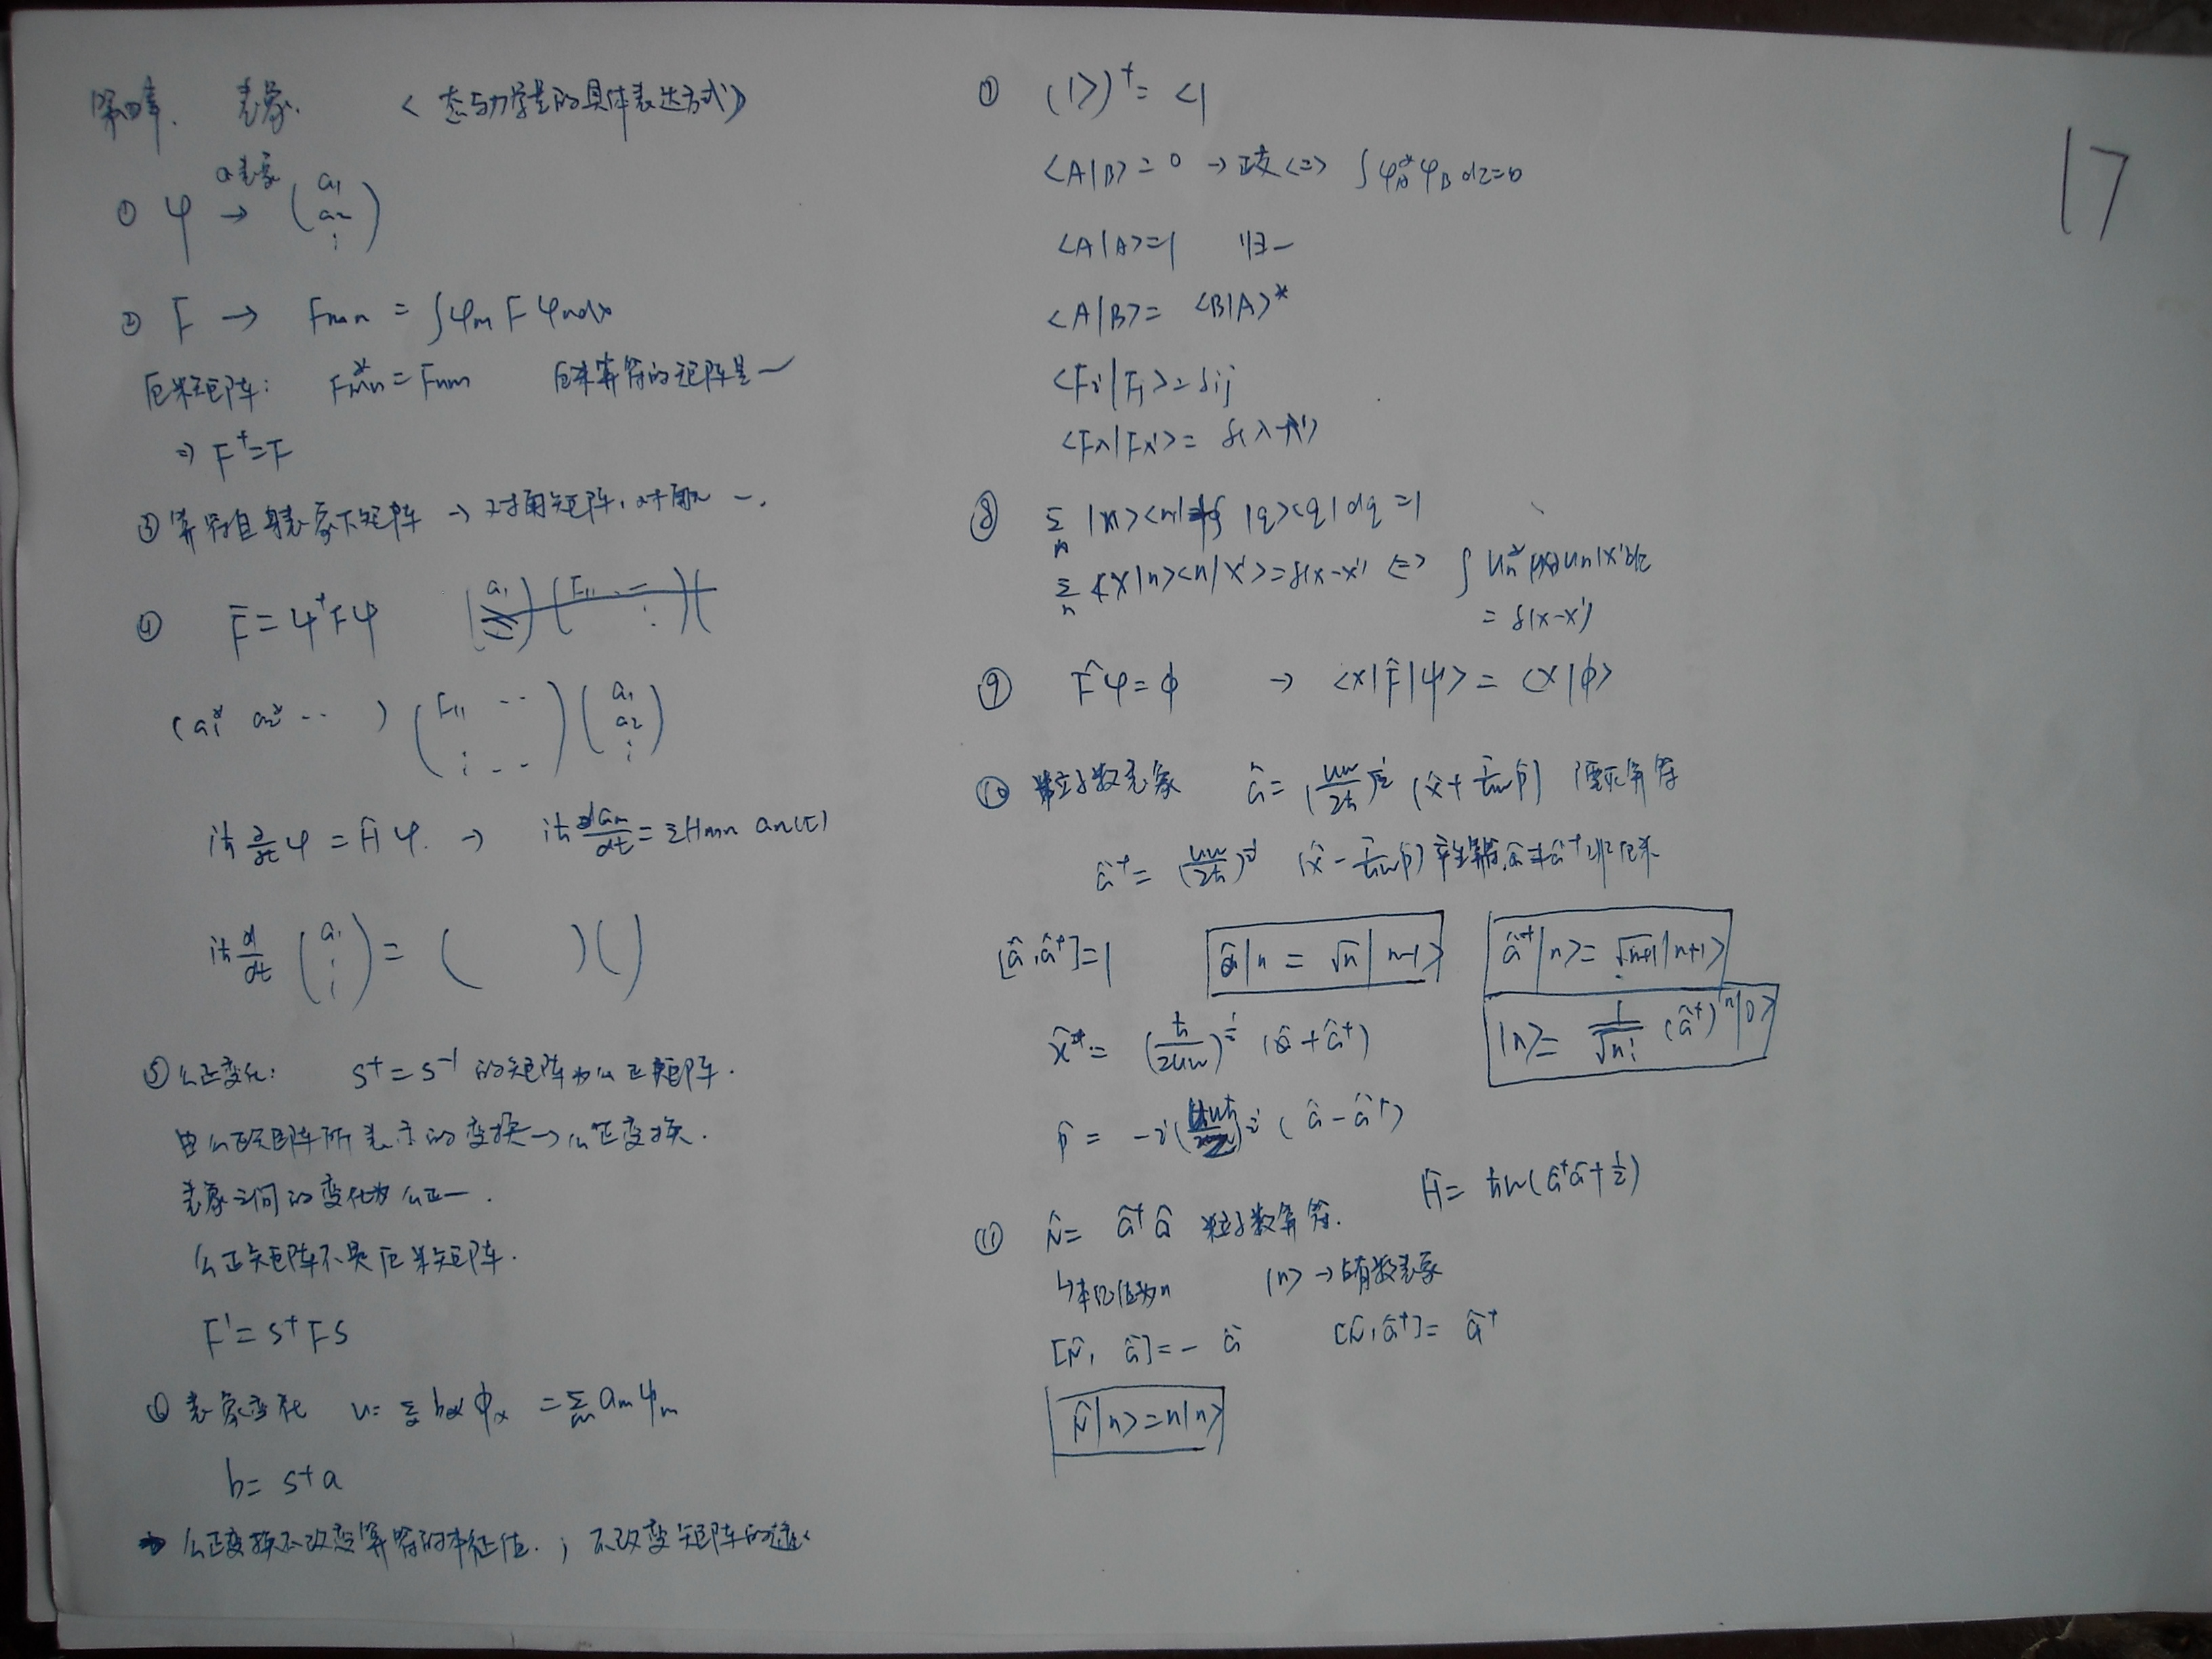 第四章. 表象. <态与力学量的具体表达方式>
① ψ →(Q表象) (a1 a2 ⋮)
② F → Fmn = ∫φm F φn dx
厄米矩阵: Fmn* = Fnm 厄米算符的矩阵是~
⇒ F⁺=F
③ 算符自身表象下矩阵 → 对角矩阵,
④ F̄ = ψ⁺Fψ
(a1* a2* ‥ ) (F11 ‥ ⋮ ‥) (a1 a2 ⋮)
iħ ∂/∂t ψ = Ĥψ. → iħ dam/dt = ΣHmn an(t)
iħ d/dt (a1 ⋮) = ( )( )
⑤ 幺正变化: S⁺=S⁻¹ 的矩阵为幺正矩阵.
由幺正矩阵所表示的变换→幺正变换.
表象之间的变化为幺正~.
幺正矩阵不是厄米矩阵.
F'=S⁺FS
⑥ 表象变化 u= Σ bα φα = Σm am ψm
b= S⁺a
幺正变换不改变算符的本征值.; 不改变矩阵的迹
⑦ (|>)⁺= <|
<A|B>=0 → 正交<=> ∫φA*φB dτ=0
<A|A>=1 归一
<A|B>= <B|A>*
<Fi|Fj>=δij
<Fλ|Fλ'>= δ(λ-λ')
⑧ Σn |n><n| ∫ |q><q|dq =1
Σn <x|n><n|x'>=δ(x-x') <=> ∫ un*(x)un(x')dτ
= δ(x-x')
⑨ F̂ψ=ϕ → <x|F̂|ψ> = <x|ϕ>
⑩ 粒子数表象 â= (μω/2ħ)^½ (x̂ + i/μω p̂) 湮灭算符
â⁺= (μω/2ħ)^½ (x̂ - i/μω p̂) 产生算符, â≠â⁺ 非厄米
[â,â⁺]=1 â|n = √n |n-1> â⁺|n>= √n+1 |n+1>
x̂= (ħ/2μω)^½ (â+â⁺) |n>= 1/√n! (â⁺)ⁿ|0>
p̂ = -i( )^½ ( â-â⁺)
Ĥ= ħω(â⁺â+½)
⑪ N̂= â⁺â 粒子数算符.
↳本征值为n |n> →占有数表象
[N̂, â]=- â [N̂,â⁺]= â⁺
N̂|n>=n|n>
17